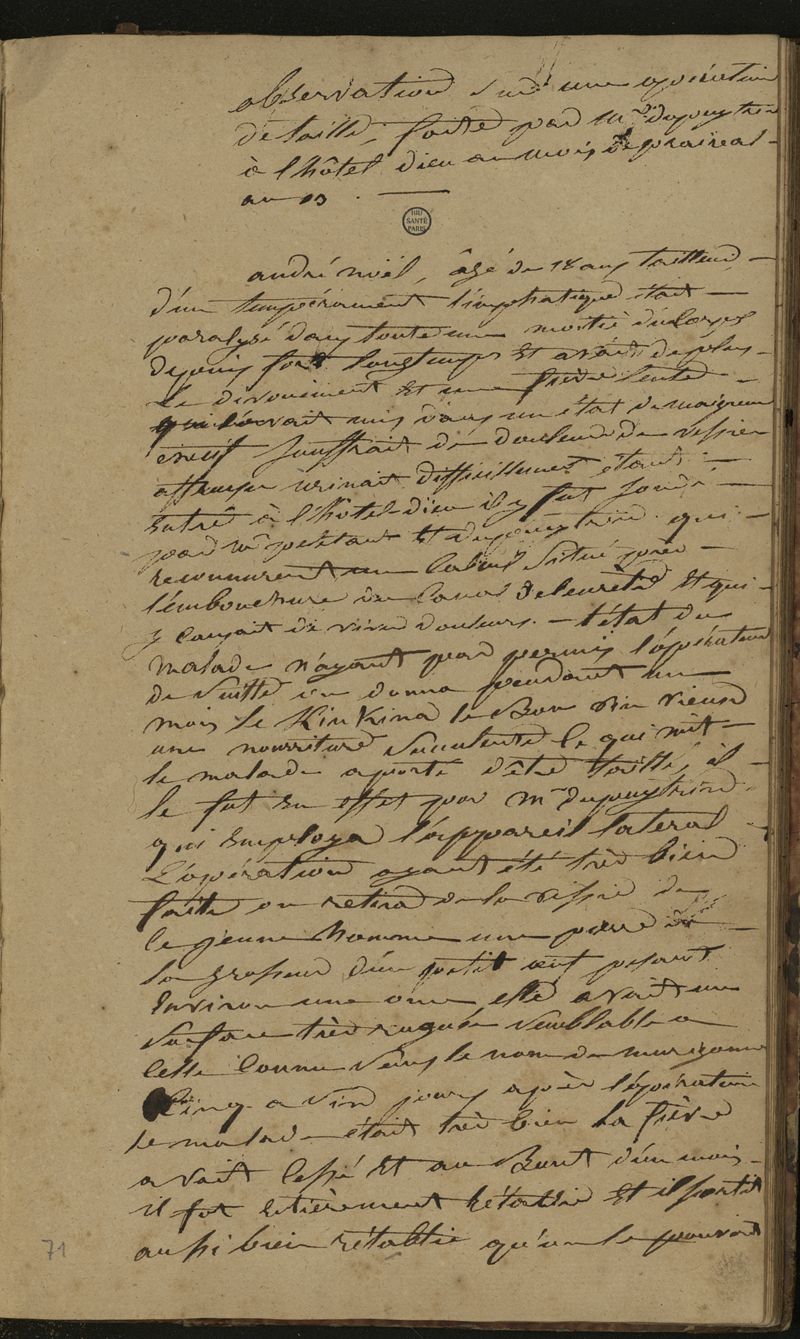 observation sur une opération
de taille, faite par Mr. dupuytren
à l'hôtel dieu au mois de prairéal
an 13.
BIU
SANTÉ
PARIS
andré noël, âgé de 18 ans tailleur,
d'un tempérament limphatique était
paralysé dans toute une moitié du corps
depuis fort longtemps et avait de plus
le dévoiment et une fièvre lente
qui l'avait mis dans un état de maigreur
souffrait de douleur de vessie
urinait difficillement étant
entré à l'hôtel-dieu il y fut sondé
par Mr peltan et dupuytrein qui
reconnurent un calcul situé près
l'embouchure du canal de leurètre et qui
y causait de vives douleurs. l'état du
malade n'ayant pas permis l'opération
de suitte on donna pendant un
mois le Kinkina le Bon vin vieux
une nourriture succulente ce qui mit
le malade aporté d'être taillé, il
le fut en effet par Mr dupuytrein
qui employa l'appareil lateral
L'opération ayant été très bien
faite on retira de la vessie de
ce jeune homme une pierre de
la grosseur d'un petit œuf pesant
environ une once elle avait une
surface très rugueuse semblable a
celle connue sous le nom de
Cinq a six jours après l'opération
le malade était très bien la fièvre
avait cessé et au Bout d'un mois
il fut entièrement rétablie et il sortit
aussi bien rétablie qu'on le pouvait
71